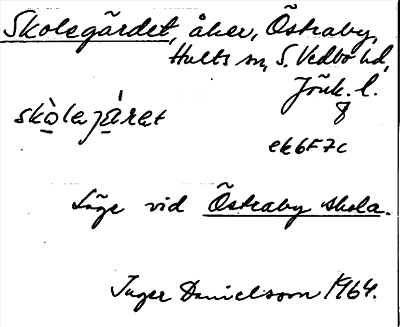 Skolegärdet, åker, Östraby,
Hults sn, S. Vedbo hd,
Jönk. l.
skòlejáret
ek 6F7c
Läge vid Östraby skola.
Inger Danielsson 1964.